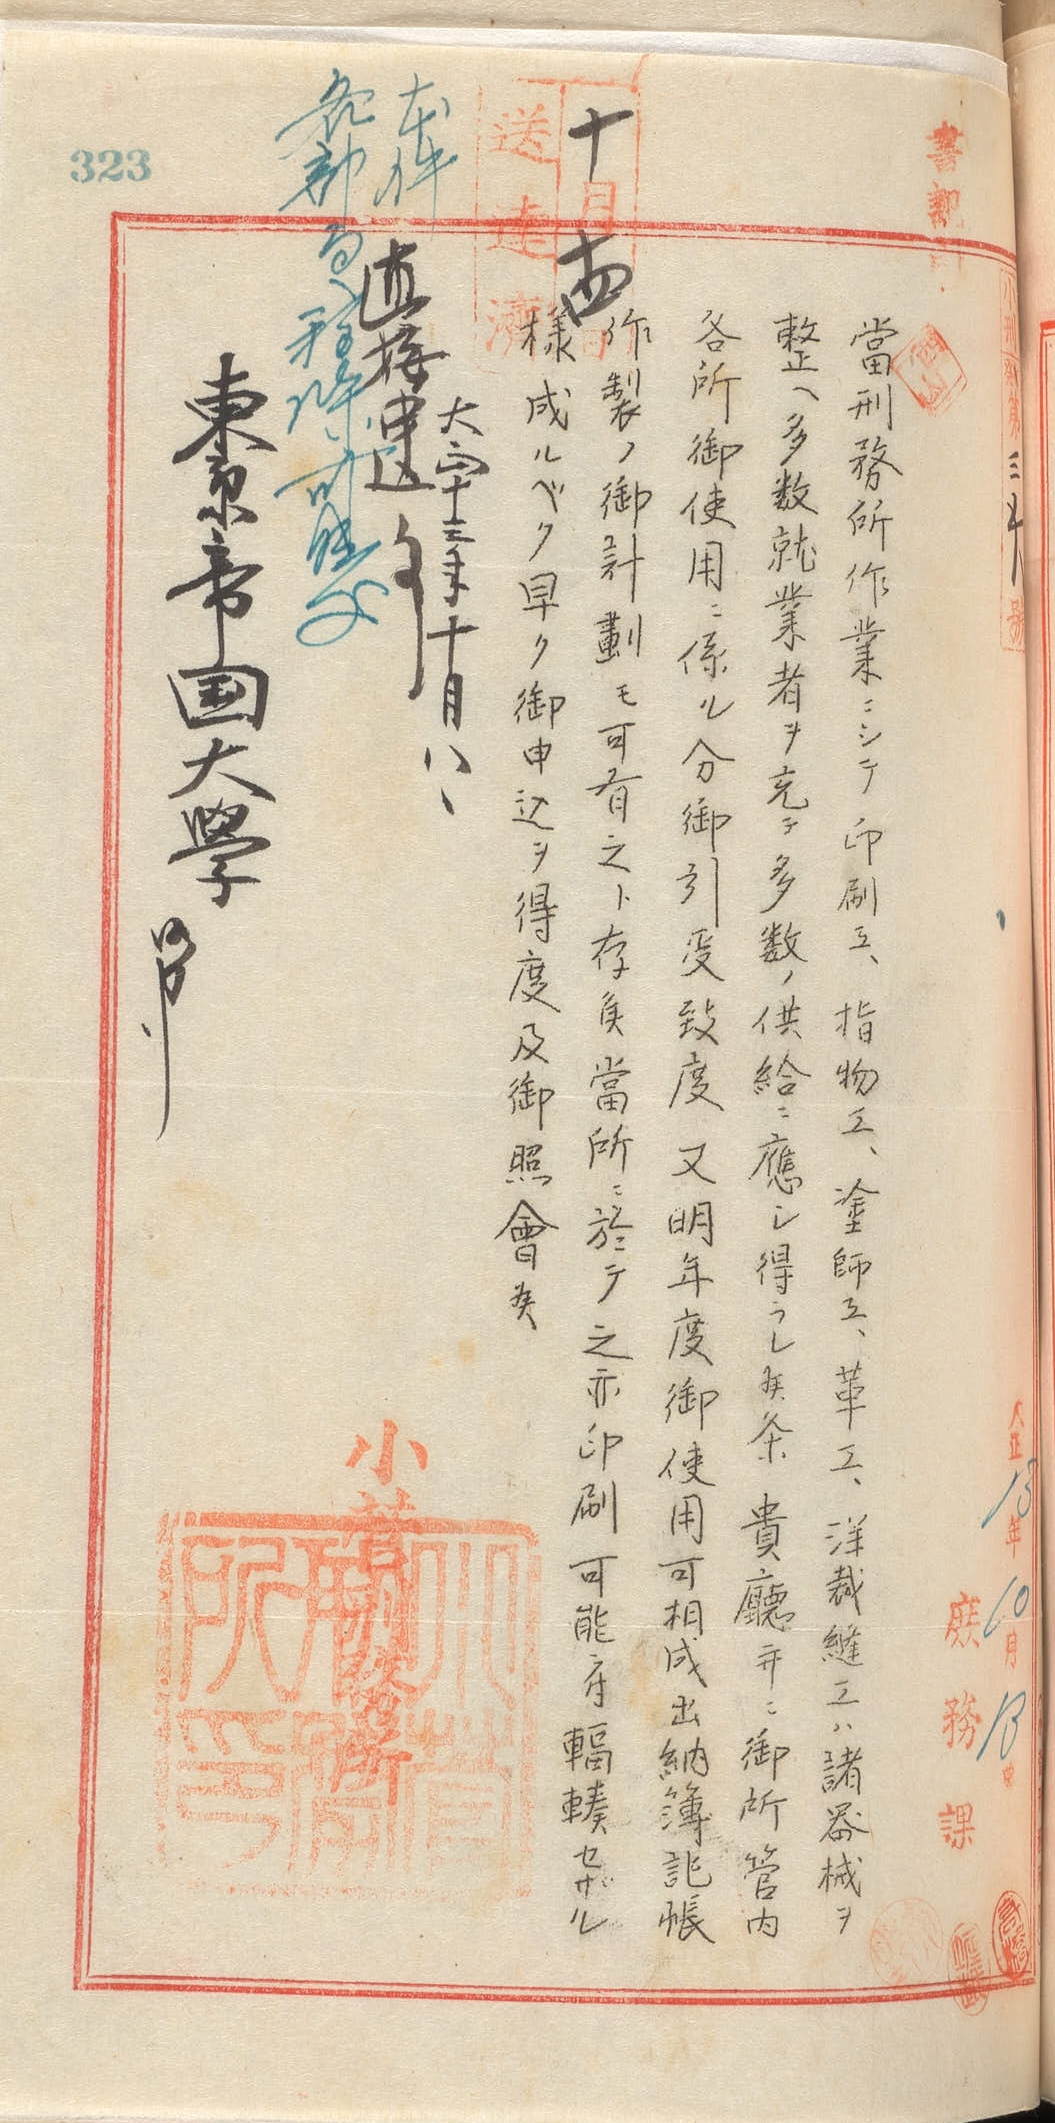 書記
小刑發第三十八號
大正13年10月13日
庶務課
當刑務所作業ニシテ印刷工、指物工、塗師工、革工、洋裁縫工ハ諸器械ヲ
整ヘ多数就業者ヲ充テ多数ノ供給ニ應シ得ラレ候条貴廳并ニ御所管内
各所御使用ニ係ル分御引受致度又明年度御使用可相成出納簿記帳
作製ノ御計劃モ可有之ト存候當所ニ於テ之亦印刷可能ニ付輻輳セザル
様成ルベク早ク御申込ヲ得度及御照會候
十月十四日
送達濟
大正十三年十月八日
小菅刑務所
東京帝国大學
御中
本件
各部局ヘ
直接申込
323